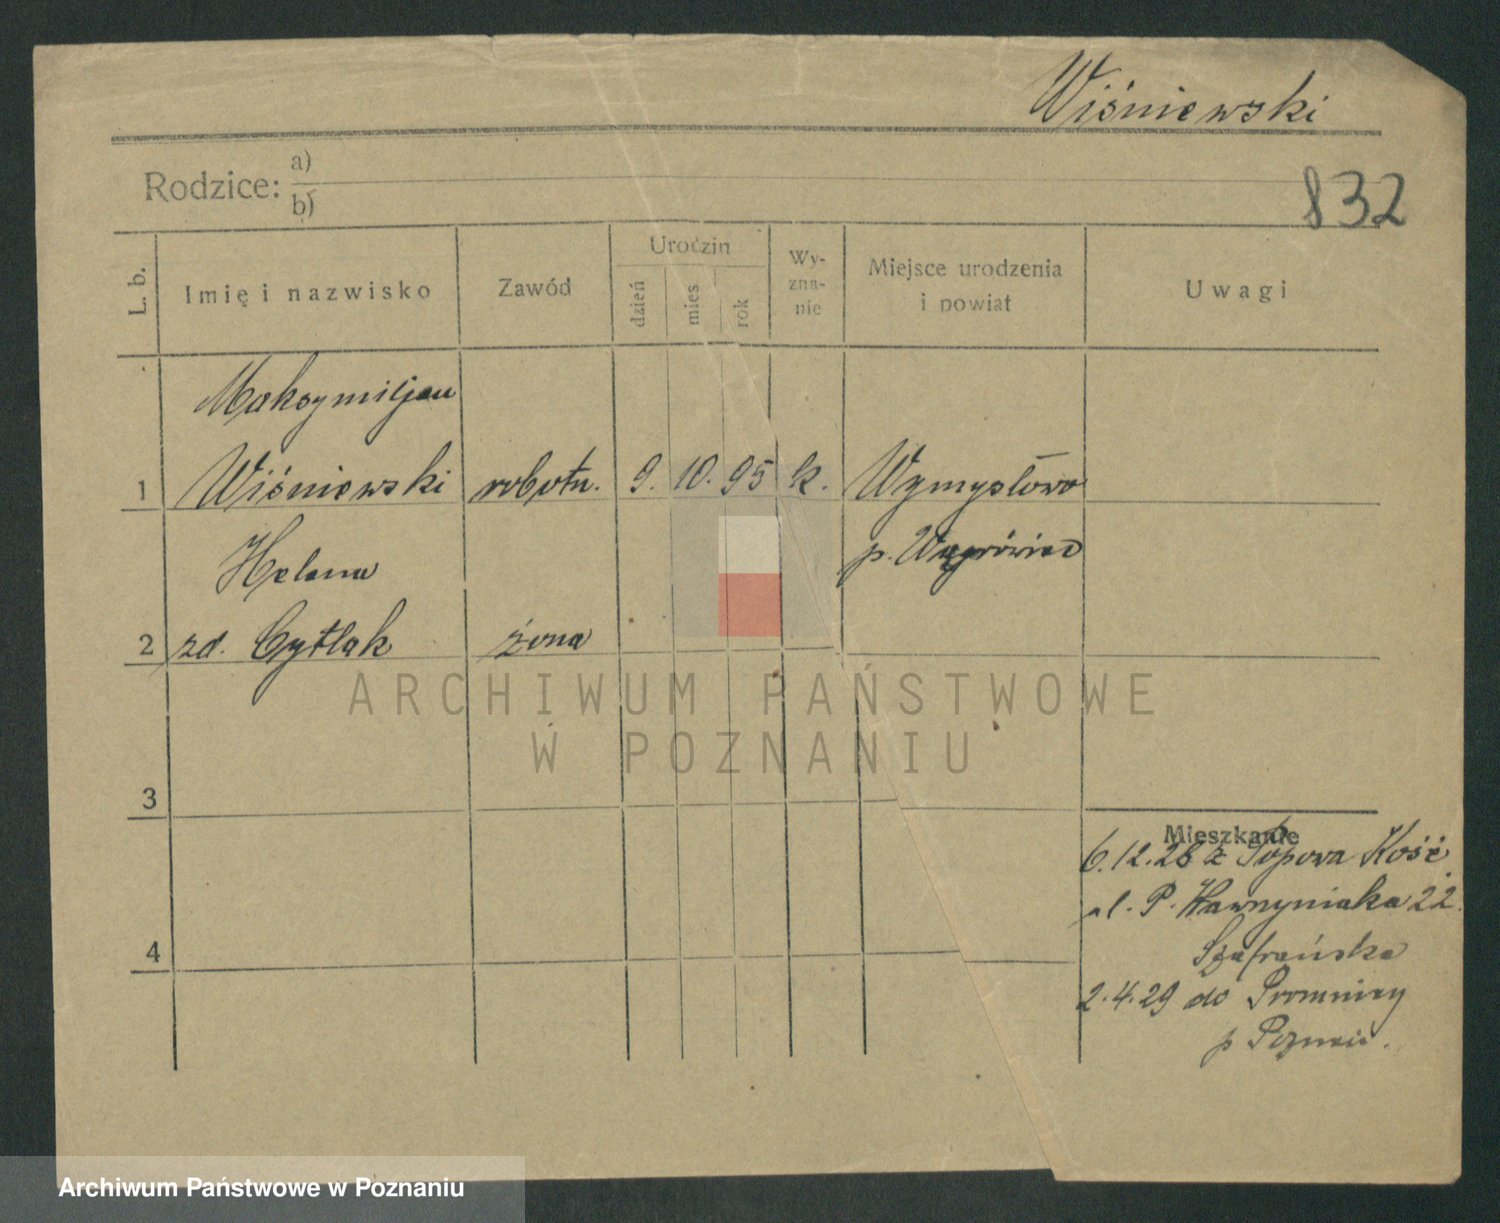 Wiśniewski
Rodzice: a)
b)
832
L. b. Imię i nazwisko Zawód Urodzin dzień mies rok Wy-zna-nie Miejsce urodzenia i powiat Uwagi
Maksymiljan
1 Wiśniewski robotn. 9. 10. 95 k. Wymysłowo
p. Wągrówiec
Helena
2 zd. Cytlak żona
ARCHIWUM PAŃSTWOWE
W POZNANIU
3
Mieszkanie
6.12.28 z Popowa Kość.
ul. P. Wawrzyniaka 22.
4
Szafrańska
2.4.29 do Promnicy
p Poznań.
Archiwum Państwowe w Poznaniu